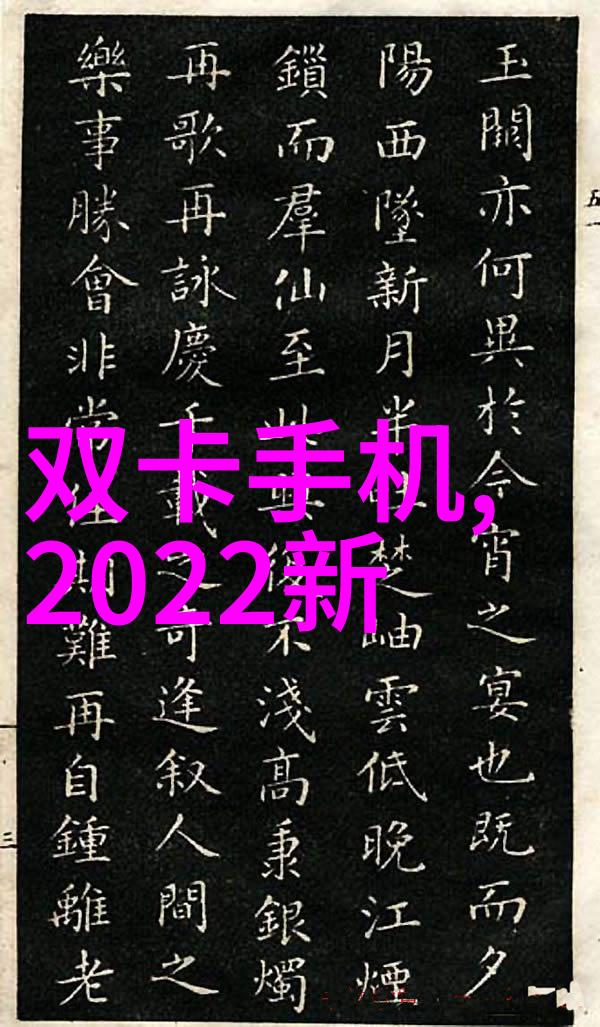 玉關亦何異於今宵之宴也既而夕
陽西墜新月半楚岫雲低晚江煙
鎖而羣仙至此興復不淺高秉銀燭
再歌再詠慶千載之奇逢叙人間之
樂事勝會非常佳期難再自鍾離老
双卡手机,
2022新
五一
三